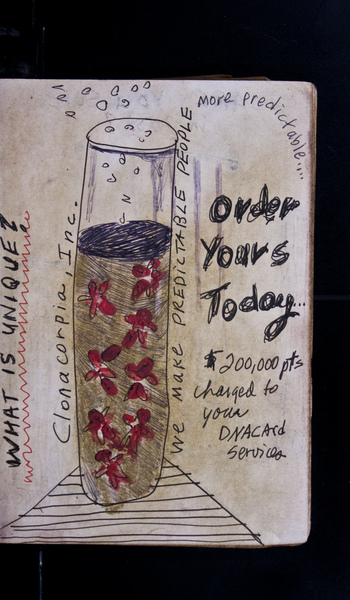 WHAT IS UNIQUE?
Clonacorpia, Inc.
We make PREDICTABLE PEOPLE
More Predictable....
Order
Yours
Today...
$200,000 pts
charged to
your
DNACArd
Services